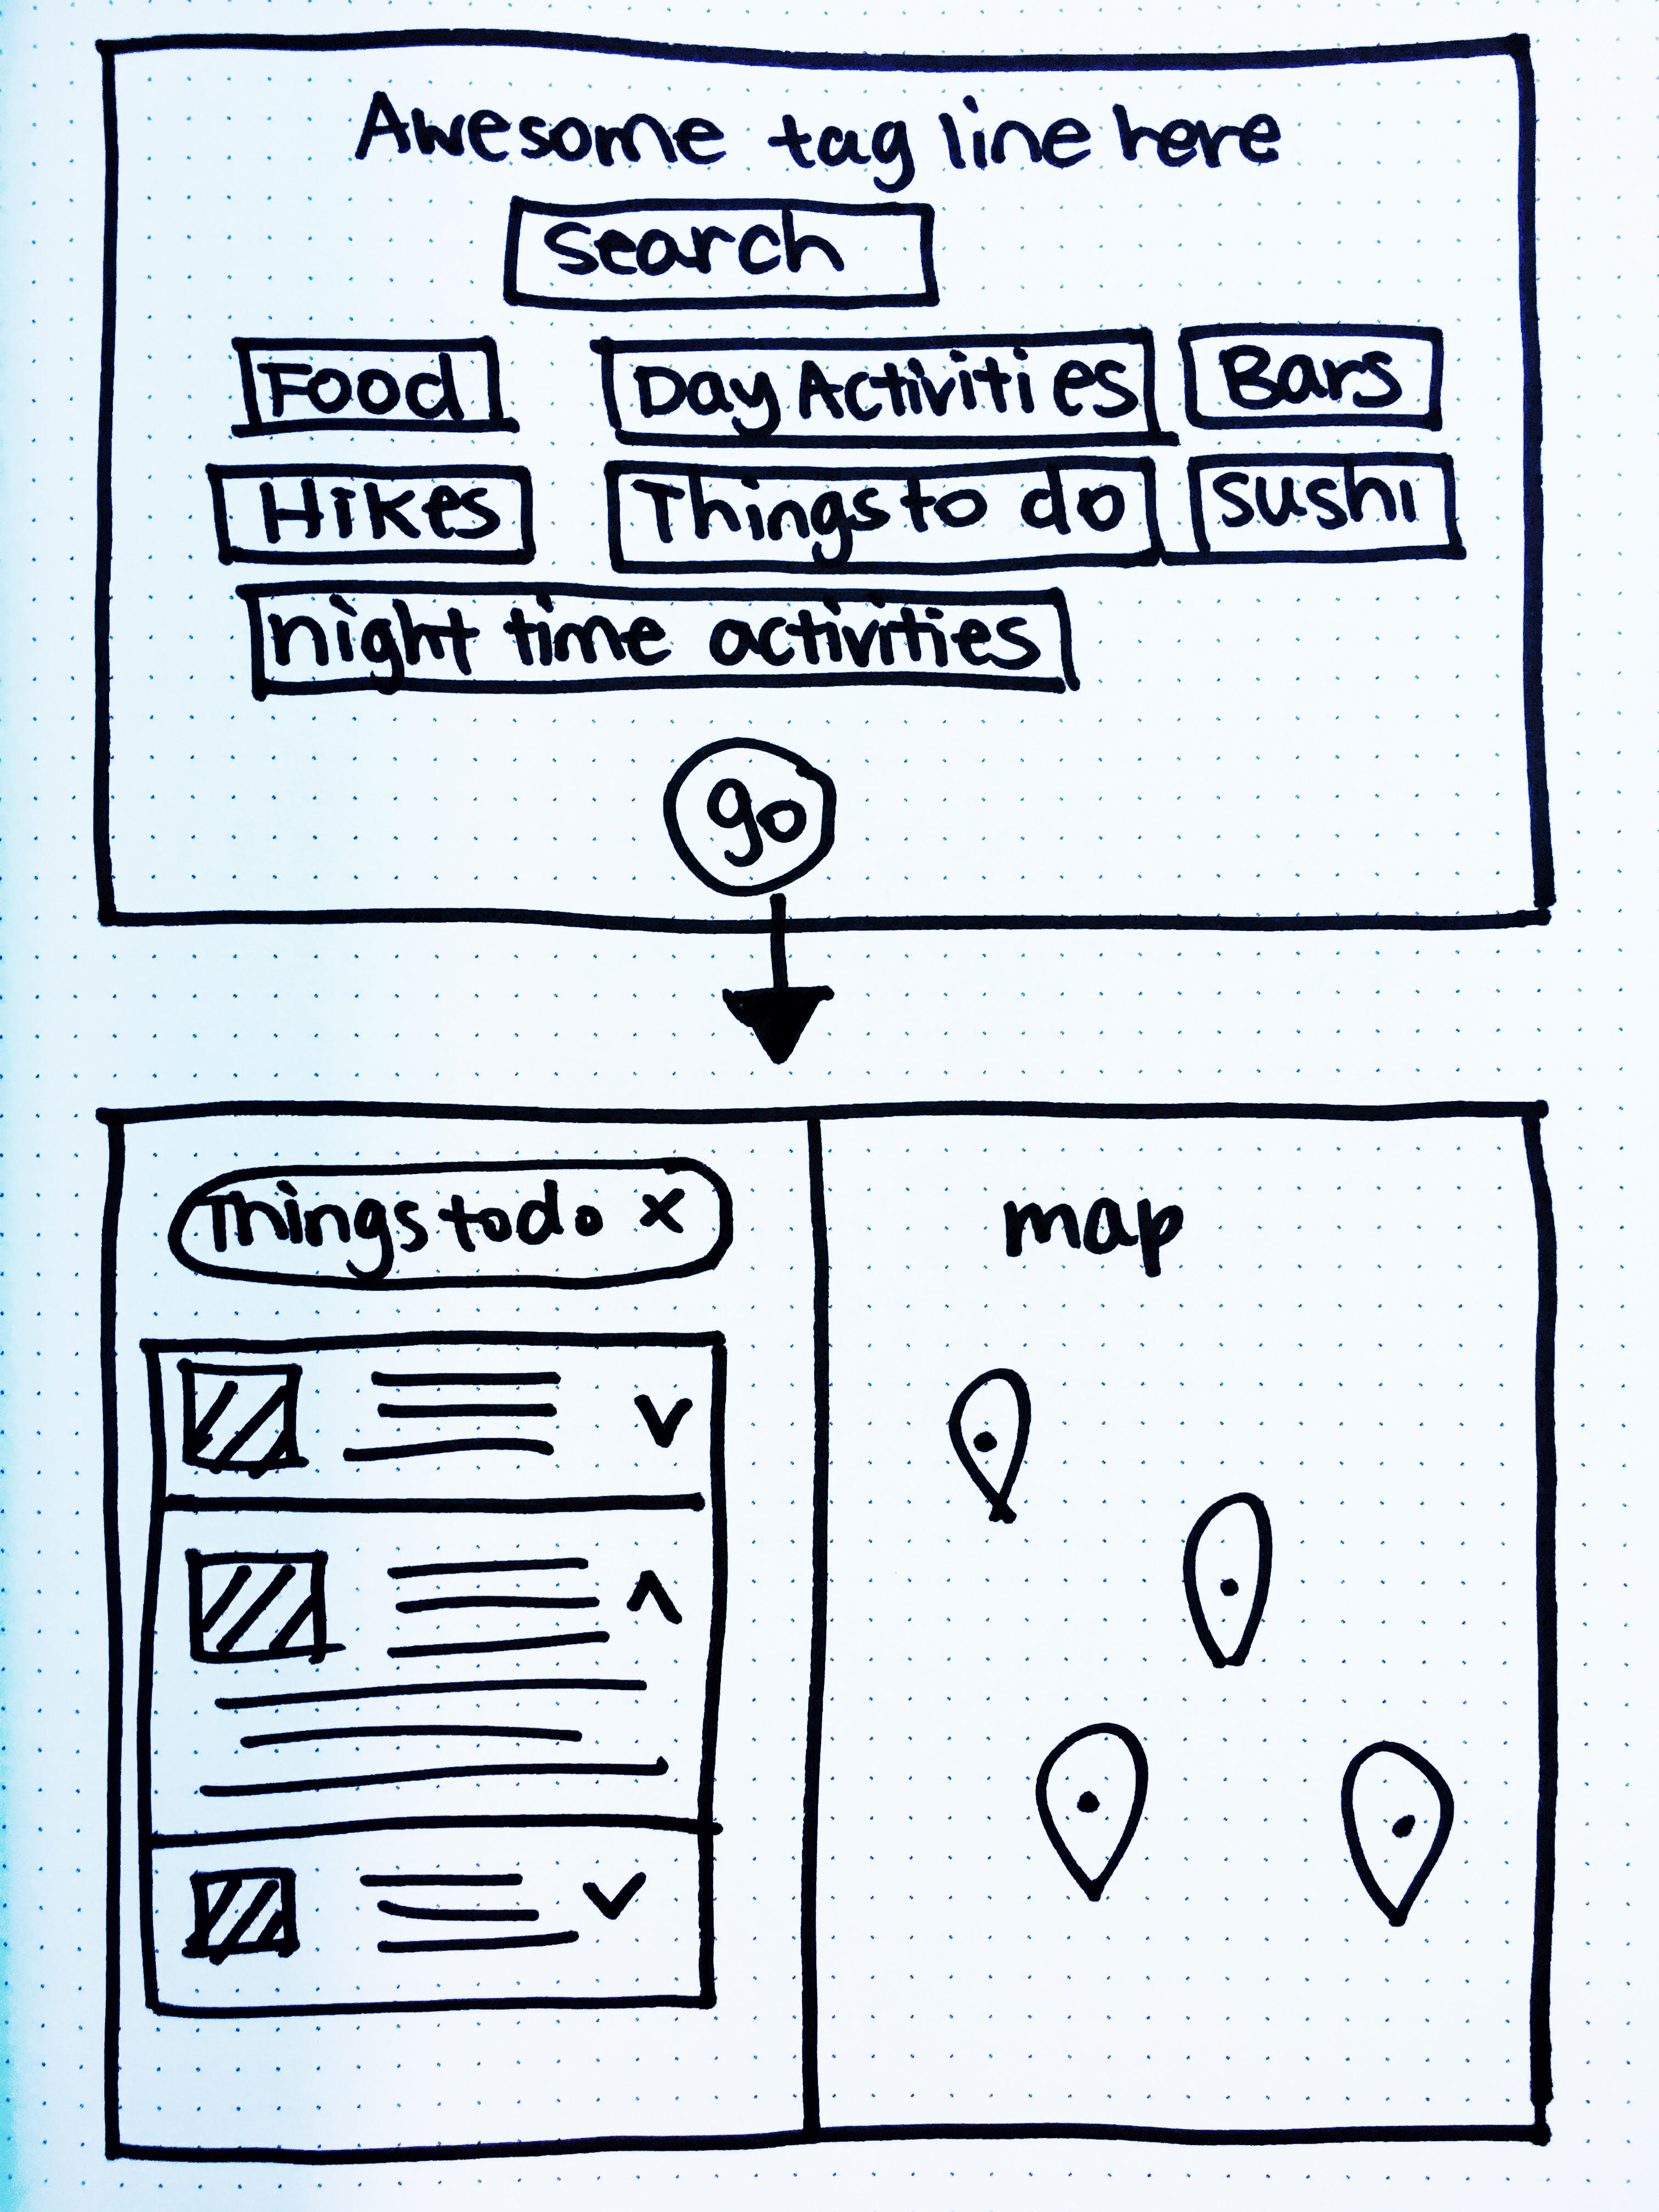 Awesome tag line here
search
Food Day Activities Bars
Hikes Things to do sushi
night time activities
go
Things to do x
map